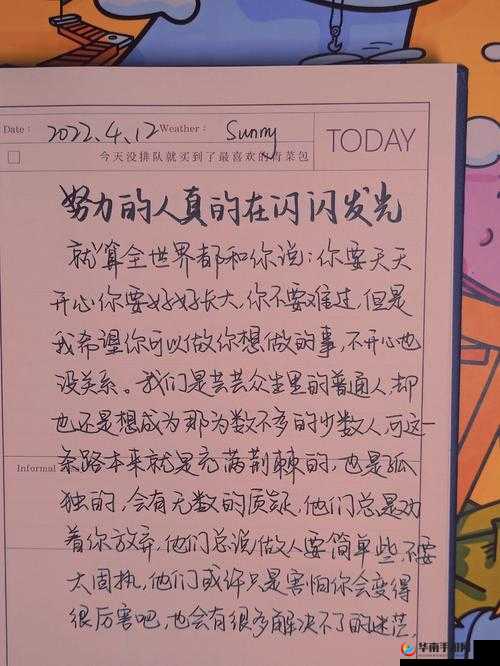 Date: 2022.4.12 Weather: Sunny
TODAY
今天没排队就买到了最喜欢的青菜包
努力的人真的在闪闪发光
就算全世界都和你说：你要天天
开心你要好好长大，你不要难过，但是
我希望你可以做你想做的事，不开心也
没关系。我们是芸芸众生里的普通人，却
也还是想成为那为数不多的少数人，可这一
条路本来就是充满荆棘的，也是孤
Informal
独的，会有无数的质疑，他们总是劝
着你放弃，他们总说做人要简单些，不要
太固执，他们或许只是害怕你会变得
很厉害吧，也会有很多解决不了的迷茫，
华南手游网